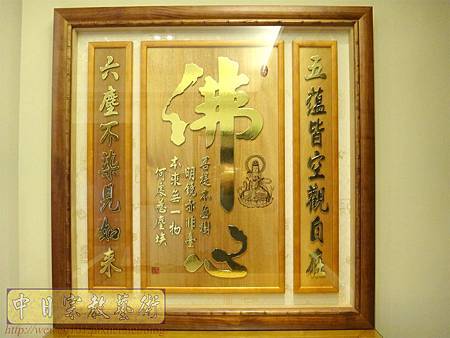 五蘊皆空觀自在
佛心
菩提本無樹
明鏡亦非臺
本來無一物
何處惹塵埃
六塵不染見如來
中日宗教藝術